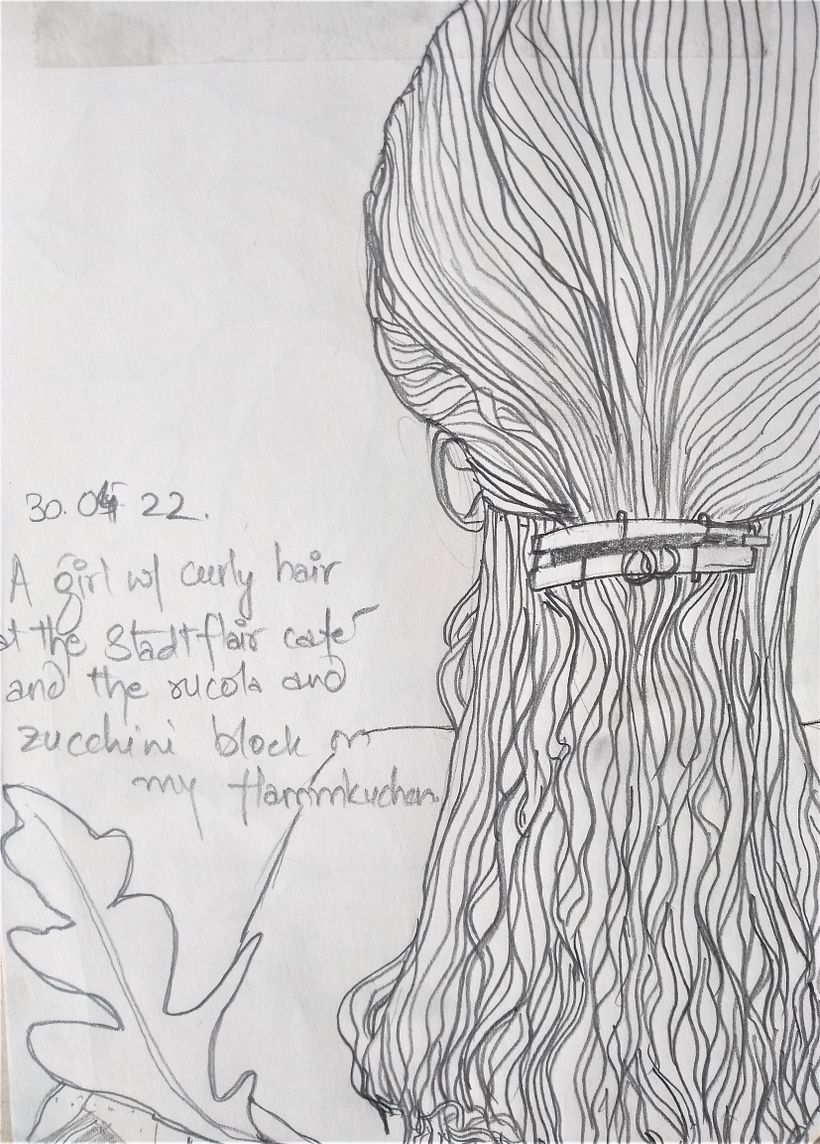 30.04 22.
A girl w/ curly hair
at the Stadtflair café
and the rucola and
zucchini block on
my flammkuchen.